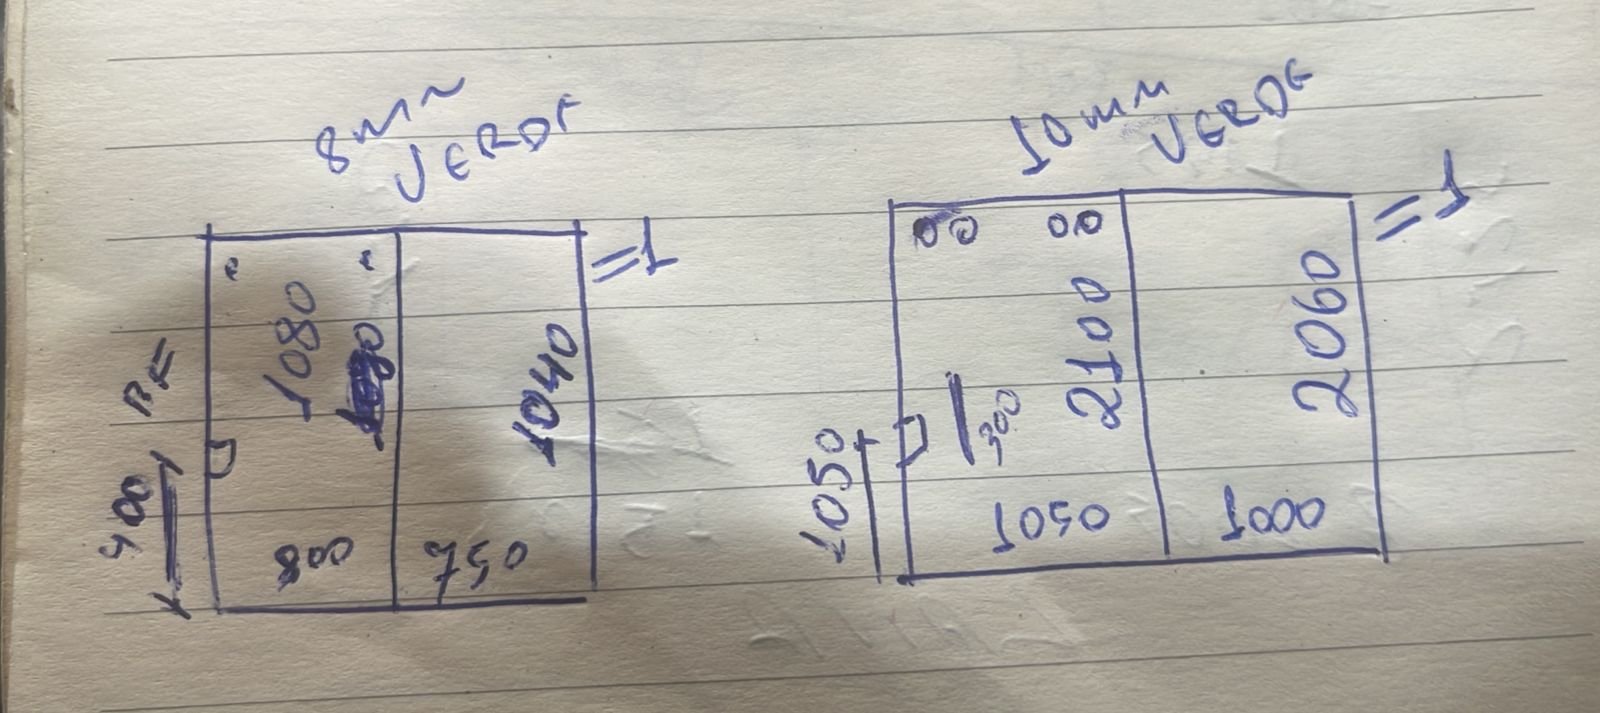 8mm
VERDE
=1
1080
1040
400
800
750
10mm
VERDE
=1
2100
2060
300
1050
1050
1000